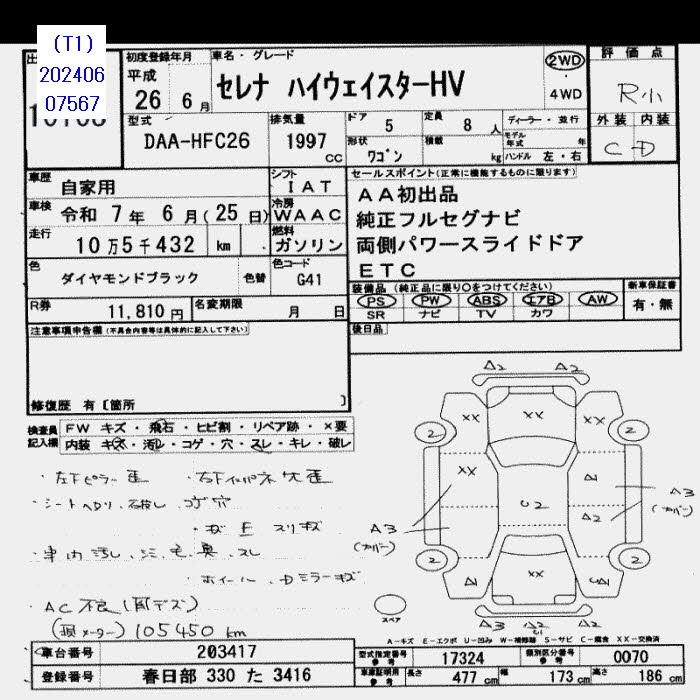 (T1)
202406
07567
初度登録年月
平成
26 6 月
車名・グレード
セレナ ハイウェイスターHV
2WD
・
4WD
評価点
R小
外装 内装
C D
型式
DAA-HFC26
排気量
1997 CC
ドア 5
定員 8 人
形状 ワゴン
積載 kg
ディーラー・並行
モデル年式 年
ハンドル 左・右
車歴 自家用
シフト IAT
車検 令和 7 年 6 月(25 日)
冷房 WAAC
走行 10万5千432 km
燃料 ガソリン
色 ダイヤモンドブラック 色替
色コード G41
R券 11,810 円
名変期限 月 日
セールスポイント(正常に機能するものに限ります)
AA初出品
純正フルセグナビ
両側パワースライドドア
ETC
装備品 (純正品に限り○をつけてください)
PS PW ABS エアB AW
SR ナビ TV カワ
新車保証書
有・無
後日品
注意事項申告欄(不具合内容等は具体的に記入して下さい)
修復歴 有 [箇所 ]
検査員記入欄
FW キズ・飛石・ヒビ割・リペア跡・×要
内装 キズ・汚レ・コゲ・穴・スレ・キレ・破レ
・左下ピラー歪
・シートヘタリ、破レ、コゲ穴
・車内汚レ、シミ、毛、臭、スレ
・AC不良(
(損メーター) 105450 km
A2 A2
XX XX XX
2 2
XX A1
U2
A2
A3 (カバー)
A3 (カバー)
2 2
A1 XX UA1
A3 A2 A2
スペア
A-キズ E-エクボ U-凹み W-補修跡 S-サビ C-腐食 XX-交換済
車台番号 203417
登録番号 春日部 330 た 3416
型式指定番号 参考 17324
類別区分番号 参考 0070
車庫証明用 参考 長さ 477 cm 幅 173 cm 高さ 186 cm